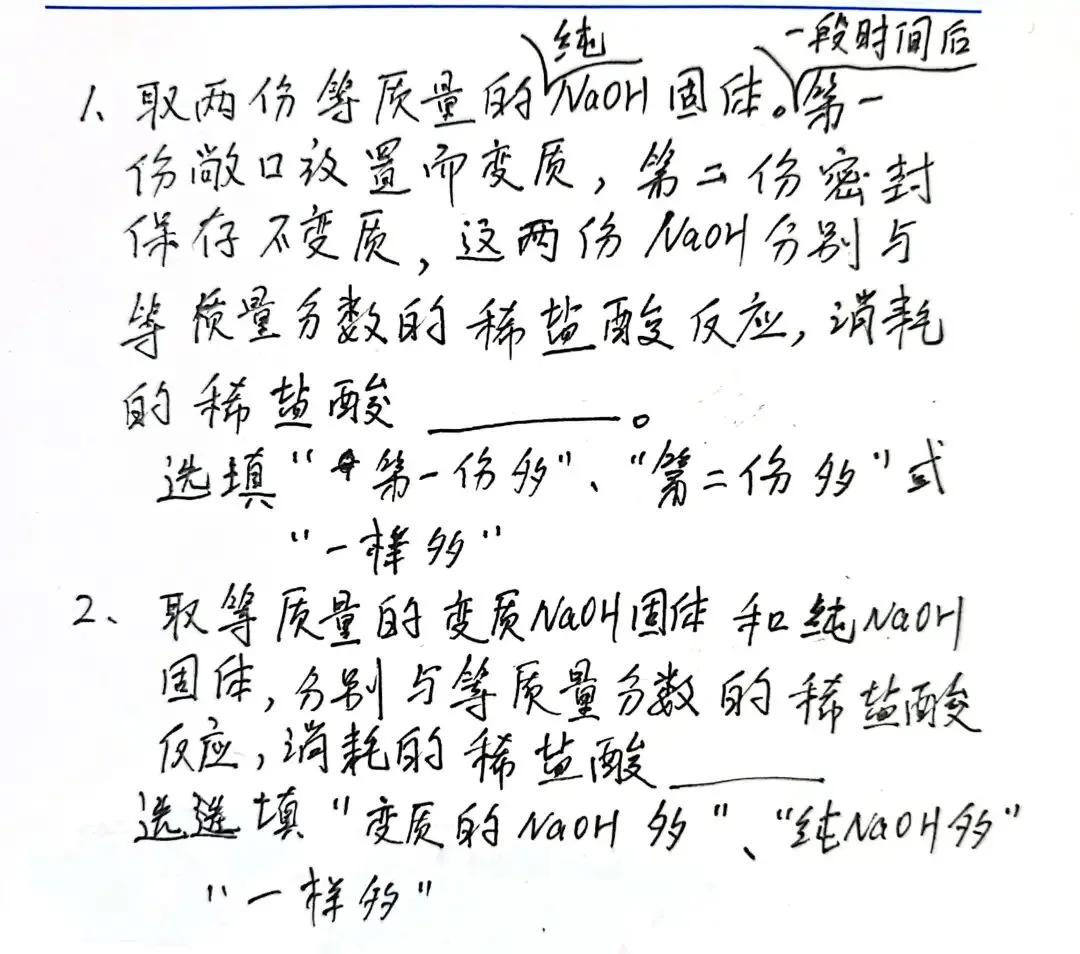 纯 一段时间后
1、取两份等质量的NaOH固体。第一
份敞口放置而变质，第二份密封
保存不变质，这两份NaOH分别与
等质量分数的稀盐酸反应，消耗
的稀盐酸______。
选填"第一份多"、"第二份多"或
"一样多"
2、取等质量的变质NaOH固体和纯NaOH
固体，分别与等质量分数的稀盐酸
反应，消耗的稀盐酸______
选选填"变质的NaOH多"、"纯NaOH多"
"一样多"